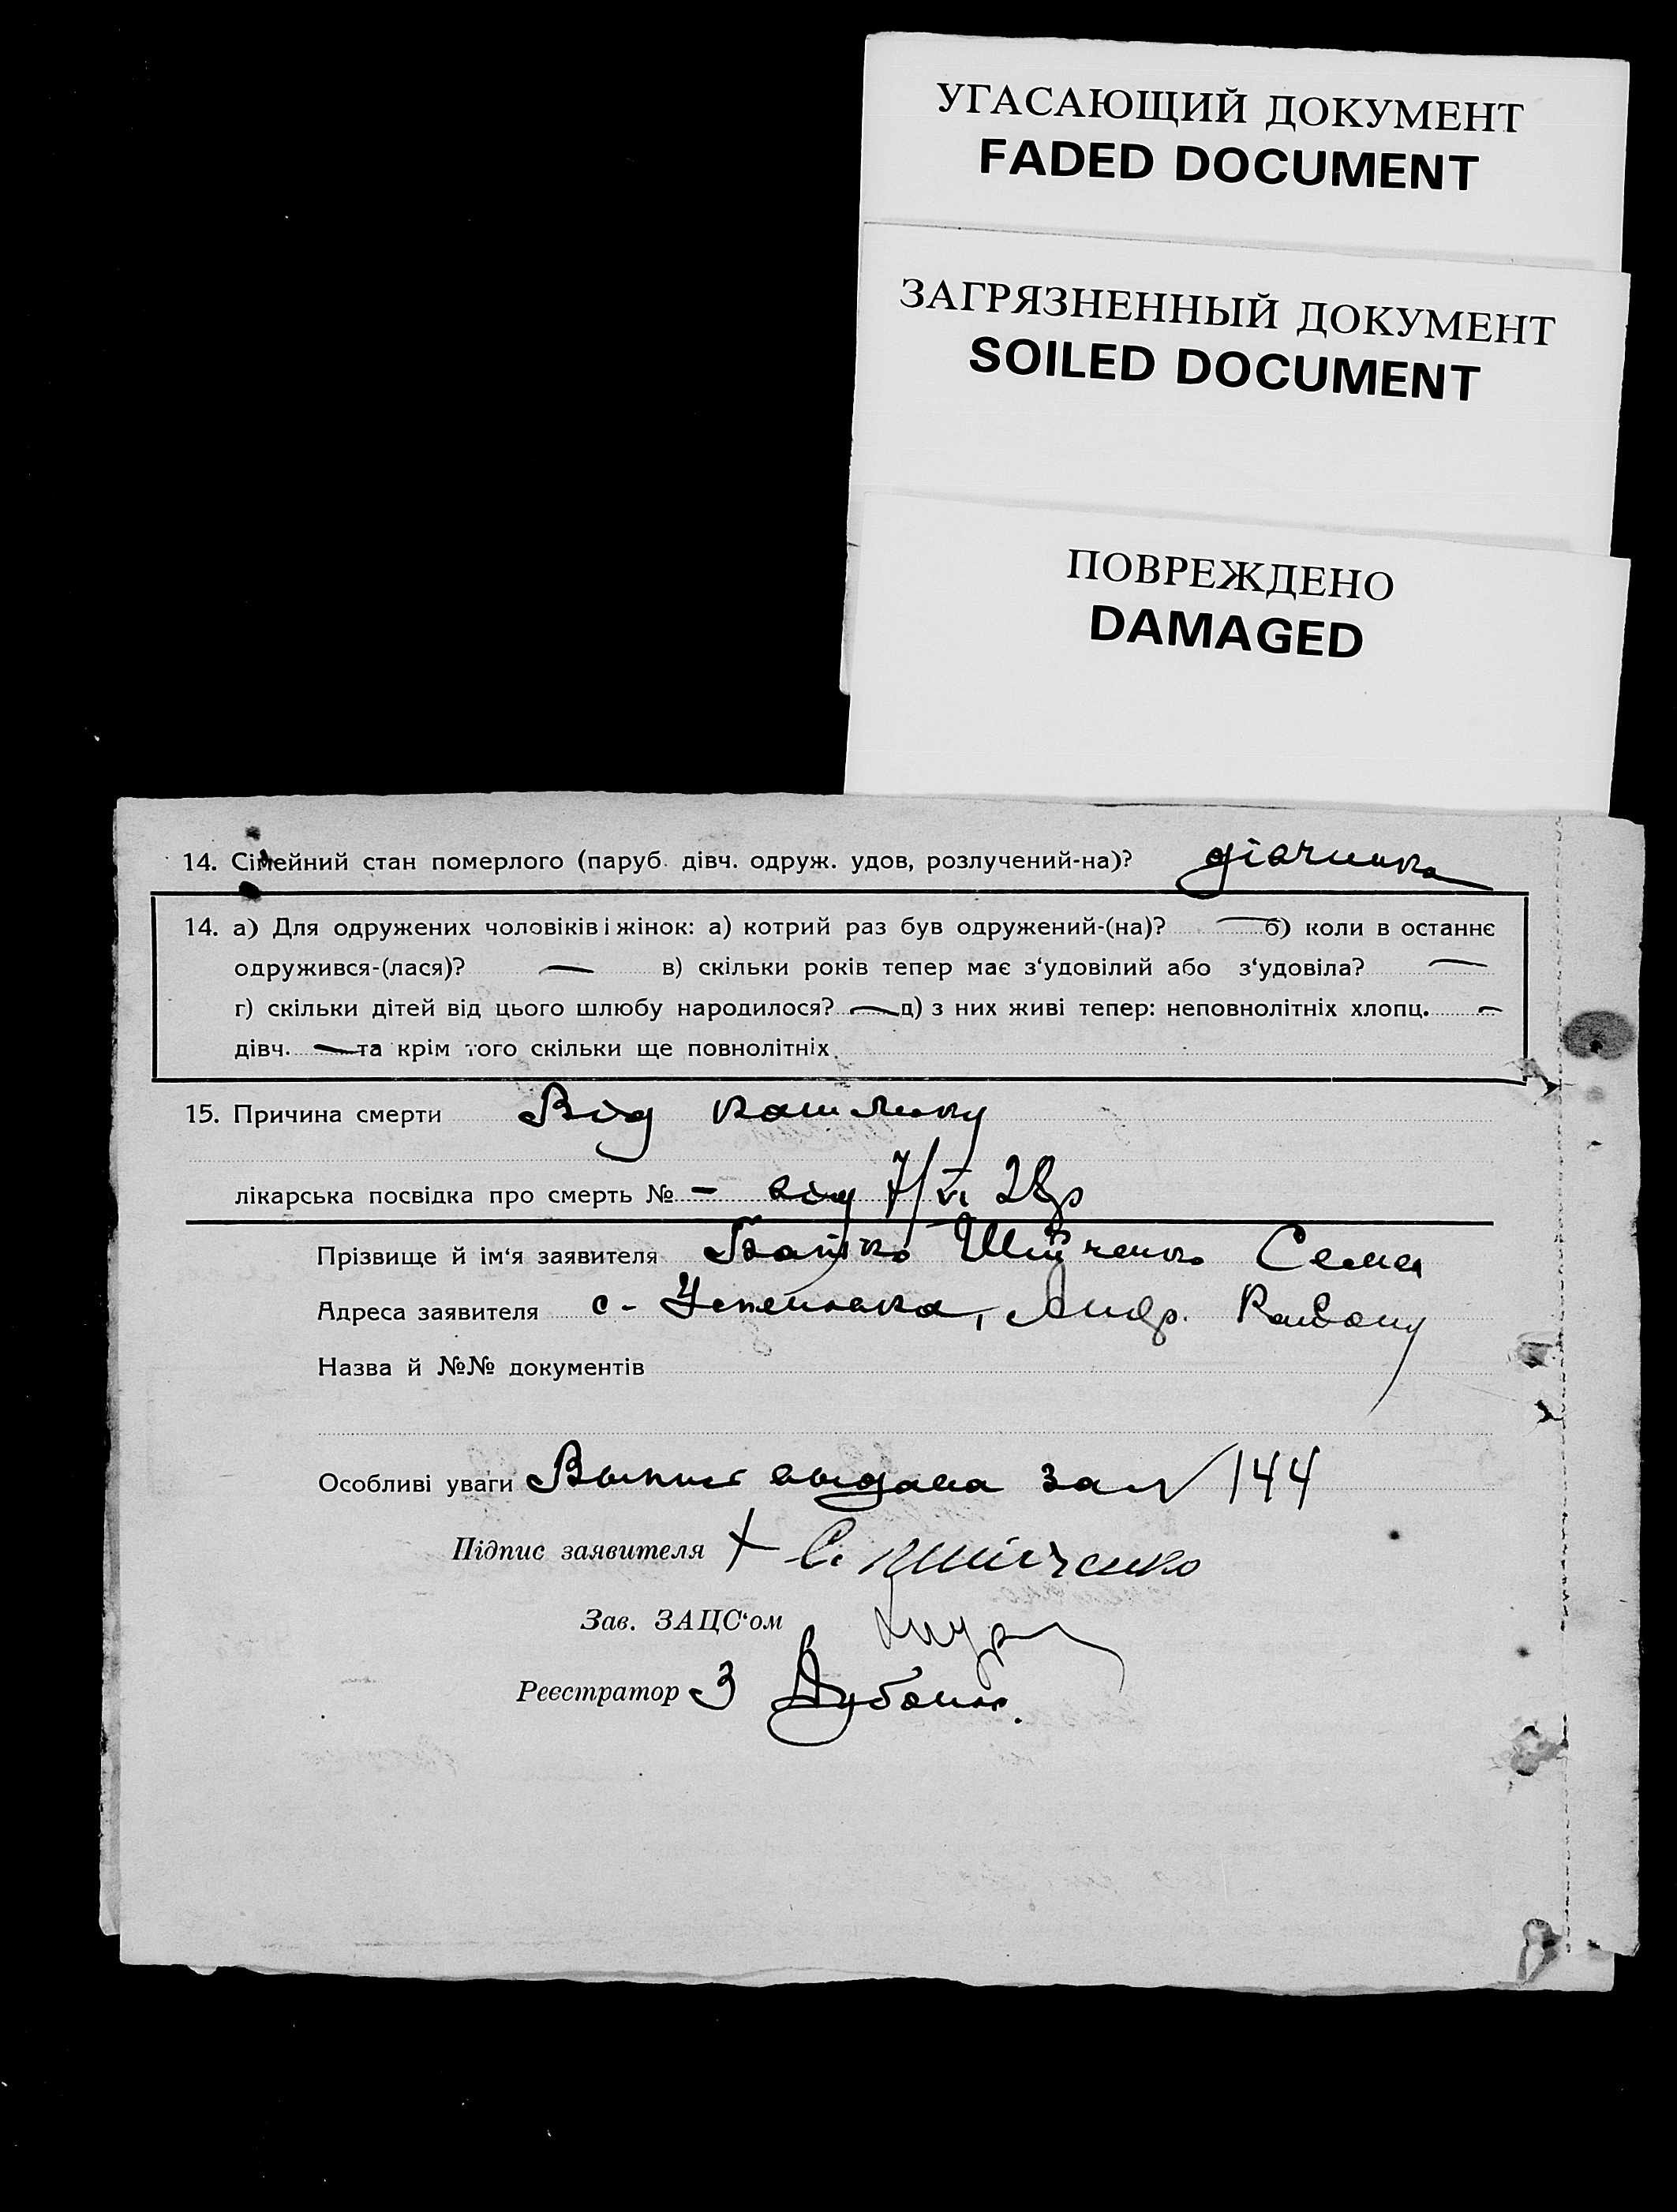 УГАСАЮЩИЙ ДОКУМЕНТ
FADED DOCUMENT
ЗАГРЯЗНЕННЫЙ ДОКУМЕНТ
SOILED DOCUMENT
ПОВРЕЖДЕНО
DAMAGED
14. Сімейний стан померлого (паруб. дівч. одруж. удов, розлучений-на)? дівчинка
14. а) Для одружених чоловіків і жінок: а) котрий раз був одружений-(на)? — б) коли в останнє
одружився-(лася)? — в) скільки років тепер має з‘удовілий або з‘удовіла? —
г) скільки дітей від цього шлюбу народилося? — д) з них живі тепер: неповнолітніх хлопц. —
дівч. — та крім того скільки ще повнолітніх
15. Причина смерти Від кашлюку
лікарська посвідка про смерть № — від 7/VI 28р
Прізвище й ім‘я заявителя Батько Семен
Адреса заявителя с. Успенівка, Андр. Району
Назва й №№ документів
Особливі уваги Выпис выдана за № 144
Підпис заявителя + С.
Зав. ЗАЦС‘ом
Реєстратор З